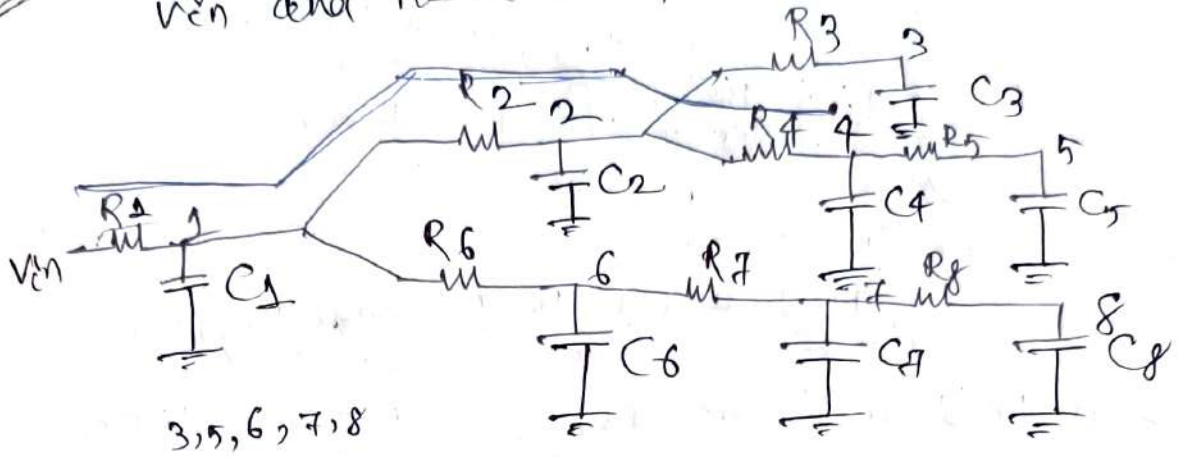 Vin
R3 3
C3
R2 2
R4 4 R5 5
C2
C4 C5
R1 1
Vin
C1
R6 6 R7 7 R8 8
C6 C7 C8
3,5,6,7,8